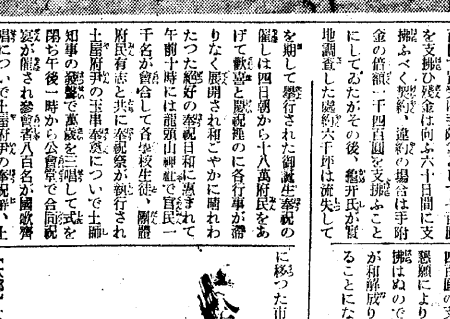 を支拂ひ殘金は向ふ六十日間に支
拂ふべく契約、違約の場合は手附
金の倍額一千四百圓を支拂ふこと
にしてゐたがその後、龜井氏が實
地調査した處約六千坪は流失して
を期して擧行された御誕生奉祝の
催しは四日朝から十八萬府民をあ
げて歡喜と慶祝裡のに各行事が滯
りなく展開され和ごやかに晴れわ
たつた絶好の奉祝日和に惠まれて
午前十時には龍頭山神社で官民一
千名が會合して各學校生徒、團體
府民有志と共に奉祝祭が執行され
土屋府尹の玉串奉奠についで土師
知事の發聲で萬歲を三唱して式を
閉ち午後一時から公會堂で合同祝
宴が催され參會者八百名が國歌齊
唱についで土屋府尹の奉祝辭、土
四百圓の支
懇願により
拂はぬので
が和解成り
ることにな
に移つた市